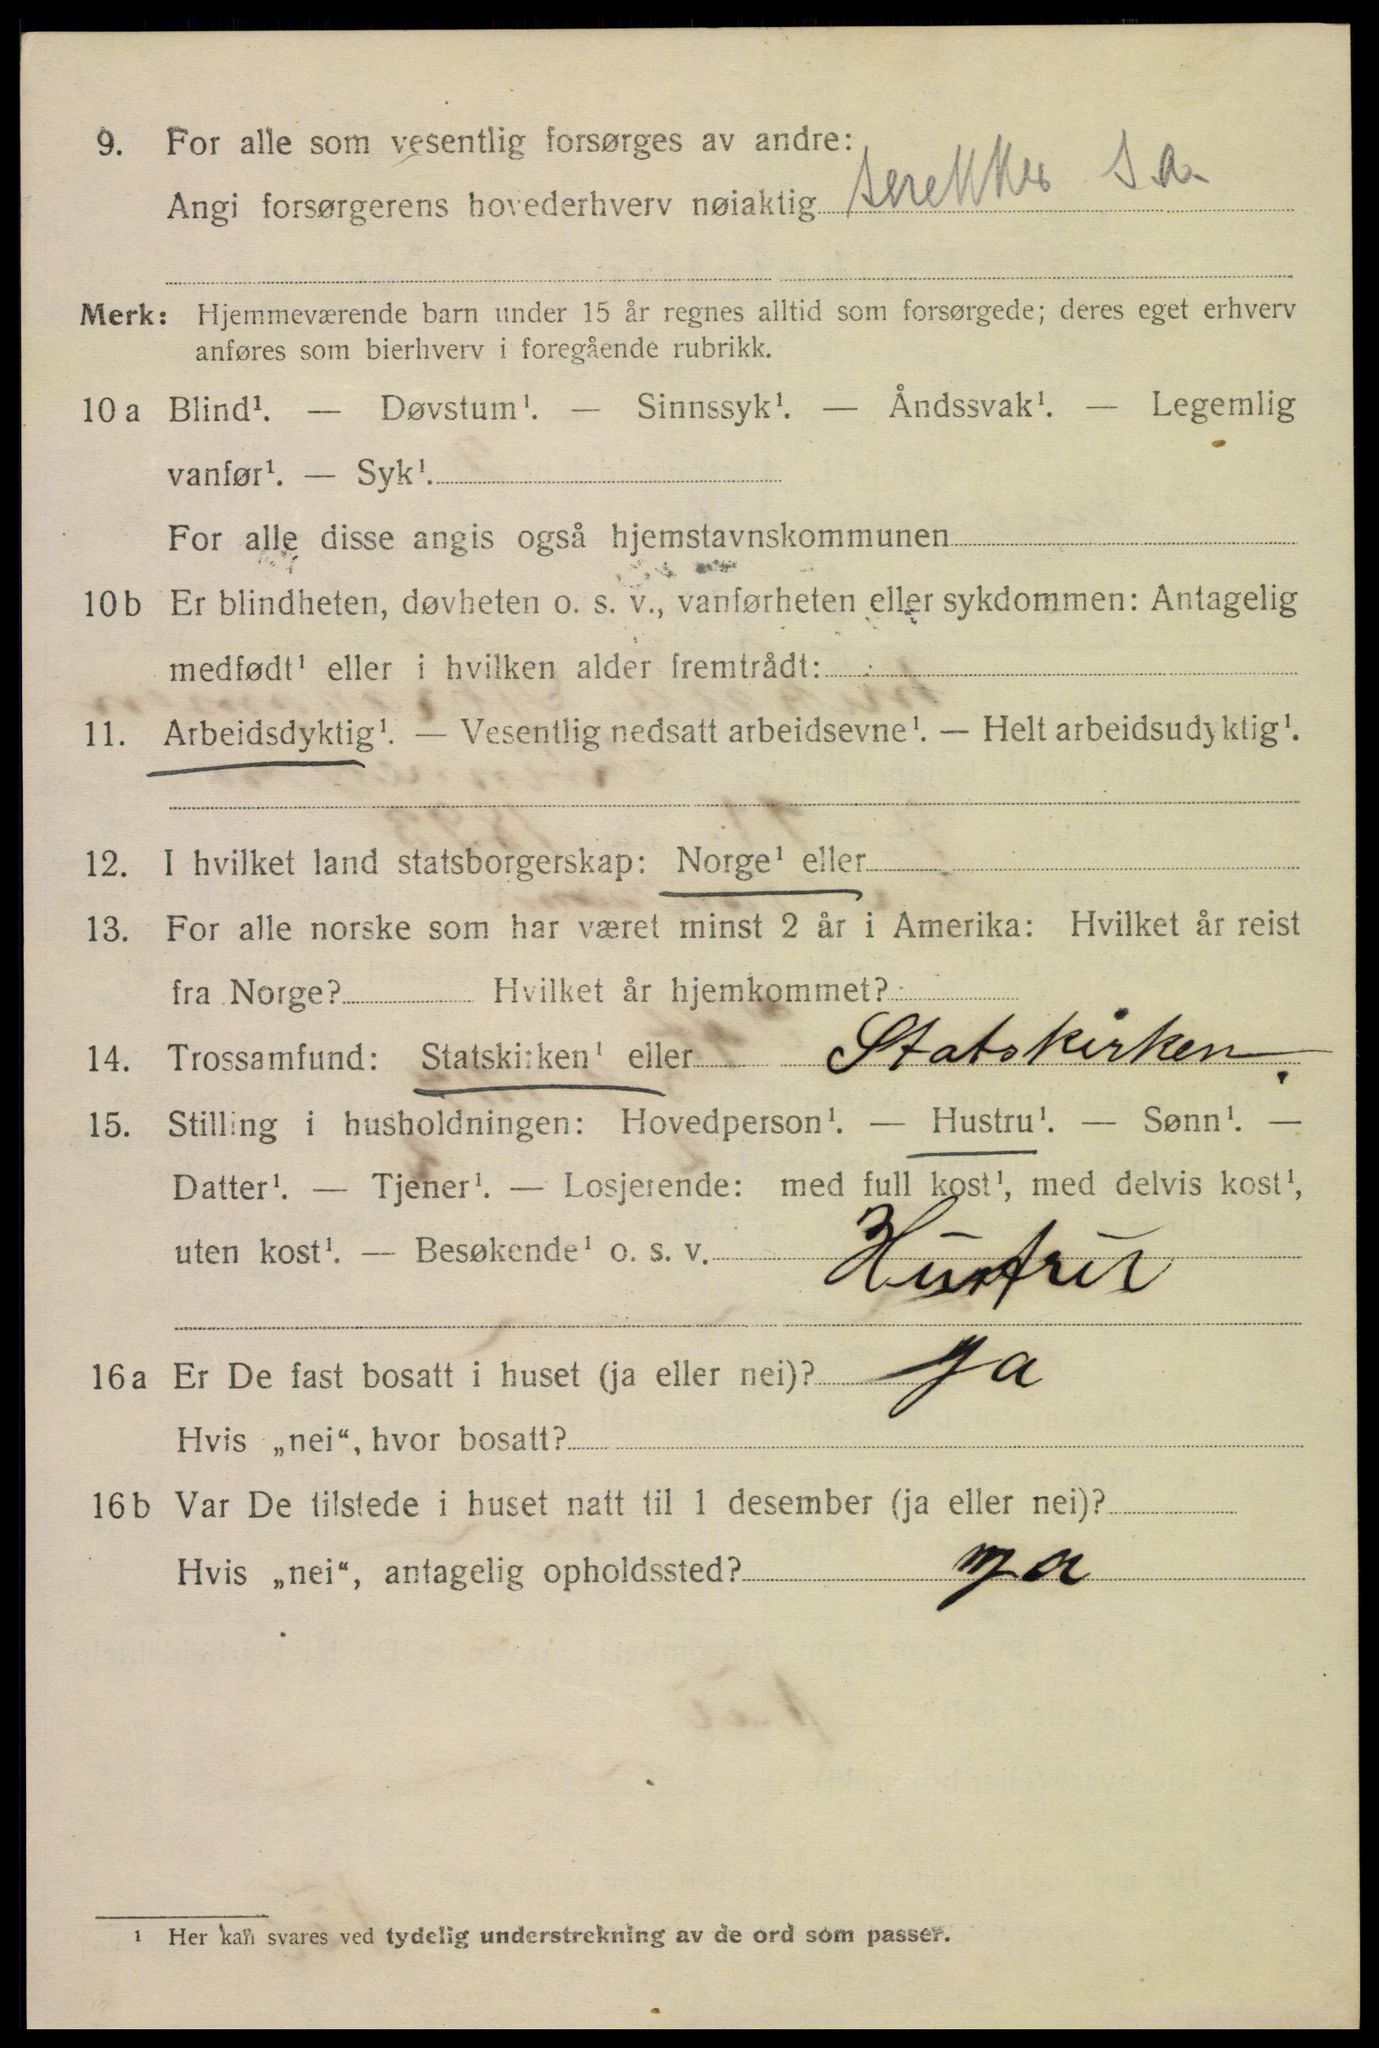 9. For alle som vesentlig forsørges av andre:
Angi forsørgerens hovederhverv nøiaktig
Merk: Hjemmeværende barn under 15 år regnes alltid som forsørgede; deres eget erhverv
anføres som bierhverv i foregående rubrikk.
10 a Blind¹. — Døvstum¹. — Sinnssyk¹. — Åndssvak¹. — Legemlig
vanfør¹. — Syk¹.
For alle disse angis også hjemstavnskommunen
10 b Er blindheten, døvheten o. s. v., vanførheten eller sykdommen: Antagelig
medfødt¹ eller i hvilken alder fremtrådt:
11. Arbeidsdyktig¹. — Vesentlig nedsatt arbeidsevne¹. — Helt arbeidsudyktig¹.
12. I hvilket land statsborgerskap: Norge¹ eller
13. For alle norske som har været minst 2 år i Amerika: Hvilket år reist
fra Norge? Hvilket år hjemkommet?
14. Trossamfund: Statskirken¹ eller Statskirken.
15. Stilling i husholdningen: Hovedperson¹. — Hustru¹. — Sønn¹. —
Datter¹. — Tjener¹. — Losjerende: med full kost¹, med delvis kost¹,
uten kost¹. — Besøkende¹ o. s. v. Hustru
16 a Er De fast bosatt i huset (ja eller nei)? Ja
Hvis „nei“, hvor bosatt?
16 b Var De tilstede i huset natt til 1 desember (ja eller nei)?
Hvis „nei“, antagelig opholdssted? Ja
¹ Her kan svares ved tydelig understrekning av de ord som passer.